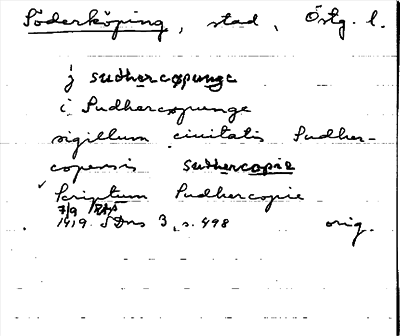 Söderköping, stad, Östg. l.
j sudhercøpunge
i Sudhercøpunge
sigillum ciuitatis Sudher-
copensis sudhercopie
✓ Scriptum Sudhercopie
7/9 RAp
1419 SDns 3, s. 498 orig.